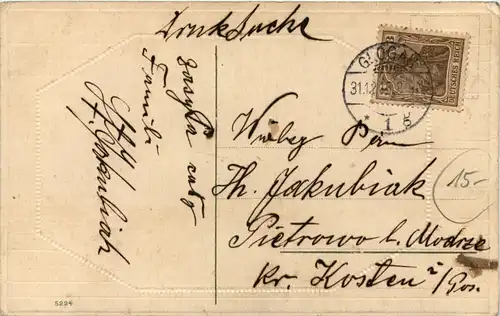 Drucksache
zasyła cała
Familie
Jakubiak
GLOGAU
31.12
* 1 g
3
DEUTSCHES REICH
Pan
Th. Jakubiak
Pietrowo b. Modrze
Kr. Kosten i/Pos.
15-
5224